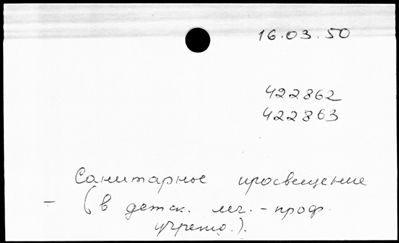 16.03.50
422862
422863
Санитарное просвещение
- (в детск. леч.-проф.
учрежд.).